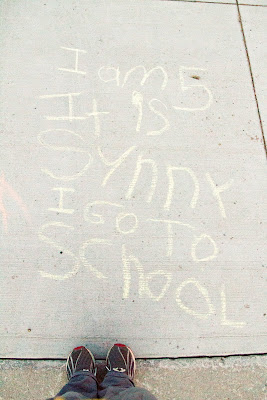 I am 5
It is
Synny
I GO TO
SchooL